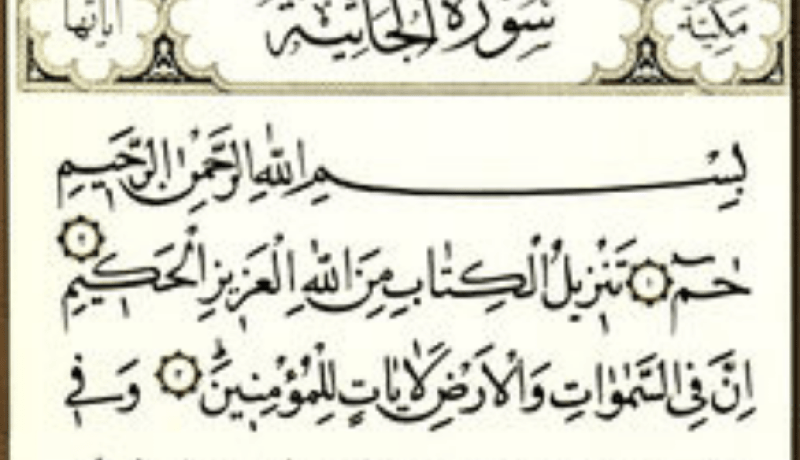 مكية سورة الجاثية اياتها
بِسْمِ اللّٰهِ الرَّحْمٰنِ الرَّحٖيمِ
حٰمٓ ۝١ تَنْزٖيلُ الْكِتَابِ مِنَ اللّٰهِ الْعَزٖيزِ الْحَكٖيمِ ۝٢
اِنَّ فِى السَّمٰوَاتِ وَالْاَرْضِ لَاٰيَاتٍ لِلْمُؤْمِنٖينَ ۝٣ وَفٖى